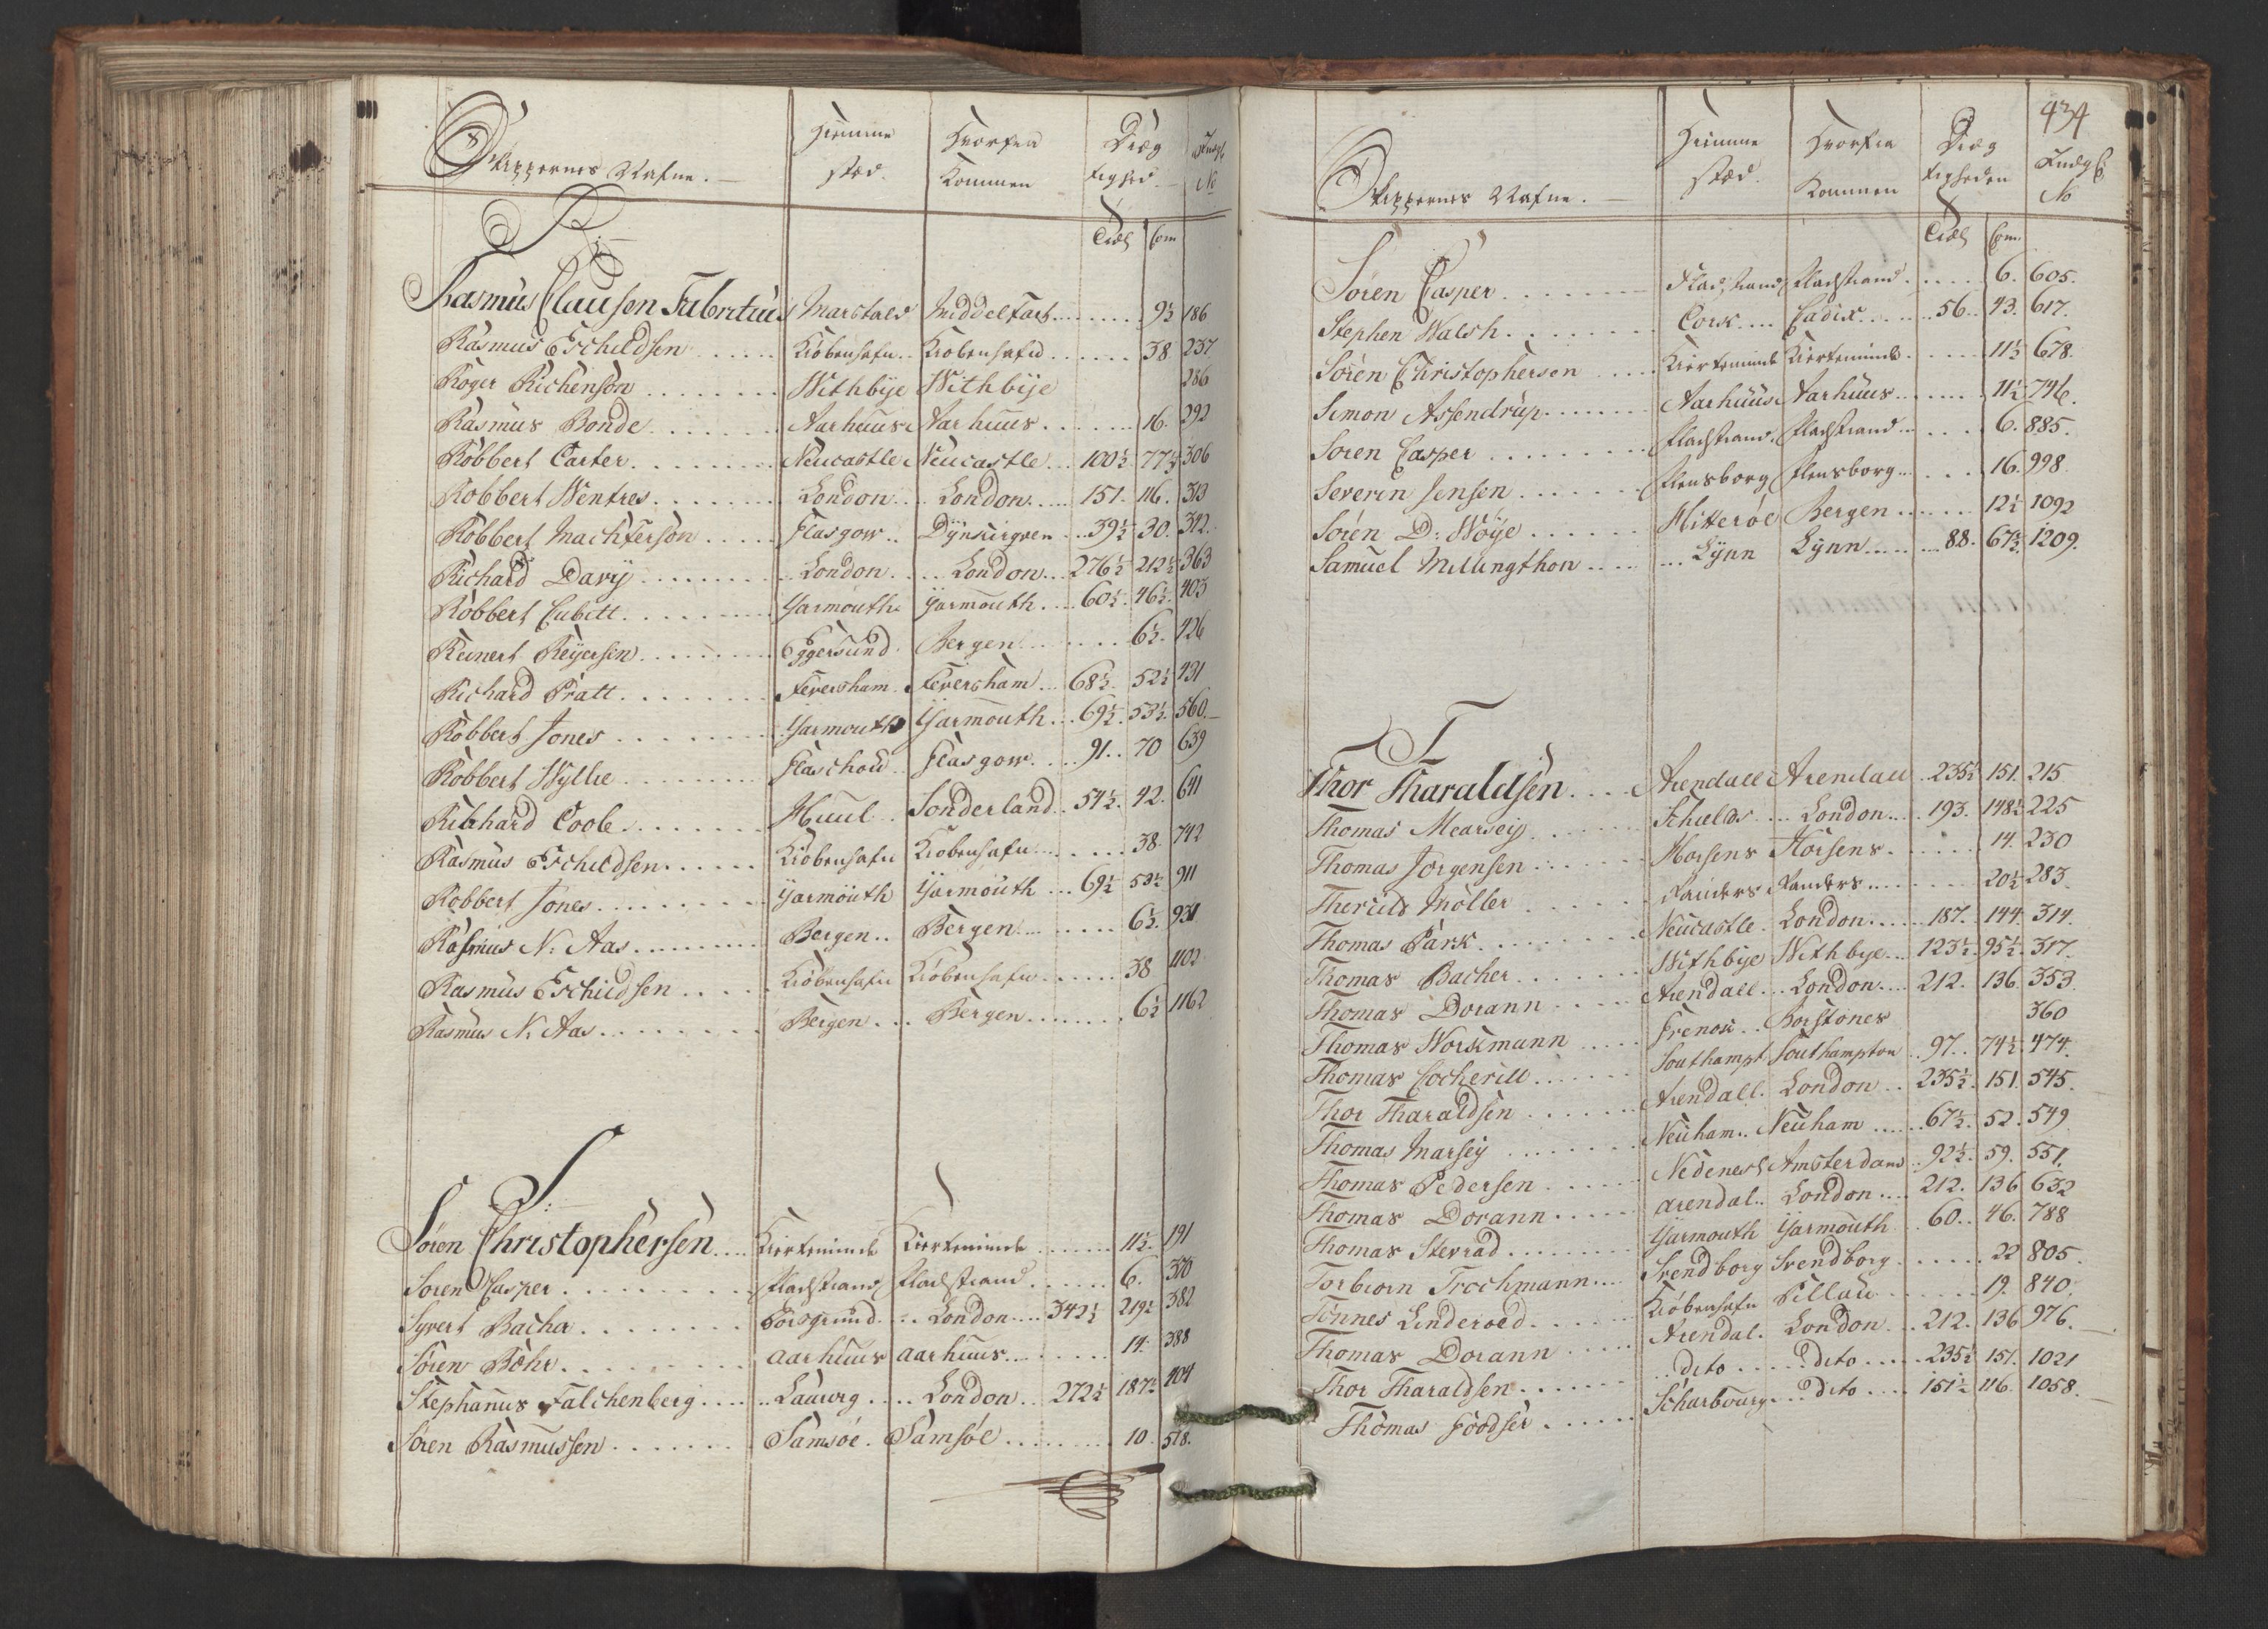 Skippernes Nafne. Hiemme sted. Hvorfra Kommen Dræg tighed No
Træl Com
R:
Rasmus Clausen Fabritius Marstald Middelfart 9½ 186
Rasmus Eschildsen Kiöbenhafn Kiöbenhafn 38 237
Roger Richenson Withbÿe Withbÿe 286
Rasmus Bonde Aarhuus Aarhuus 16. 292
Robbert Carter Neucastle Neucastle 100½ 77½ 306
Robbert Wentres London London 151. 116. 313
Robbert Machferson Glasgow Dÿnkirgven 39½ 30. 342.
Richard Davÿ London London 276½ 212½ 363
Robbert Cubitt Yarmouth Yarmouth 60½ 46½ 403
Reinert Reÿersen Eggersund Bergen 6½. 426
Richard Pratt Feversham Feversham 68½ 52½ 431
Robbert Jones Yarmouth Yarmouth 69½ 53½ 560.
Robbert Wÿllie Glaschou Glasgow 91. 70 639
Richard Cook Huul Sonderland 54½ 42. 641
Rasmus Eschildsen Kiöbenhafn Kiöbenhafn 38. 742
Robbert Jones Yarmouth Yarmouth 69½ 53½ 911
Rasmus N: Aas Bergen Bergen 6½. 931
Rasmus Eschildsen Kiöbenhafn Kiöbenhafn 38 1102
Rasmus N: Aas Bergen Bergen 6½ 1162
S:
Sören Christophersen Kierteminde Kierteminde 11½ 191
Sören Casper Flachstrand Flachstrand 6. 320
Syvert Bacha Porsgrund London 342½ 219½ 382
Sören Böhr Aarhuus Aarhuus 14. 388
Stephanus Falchenberg Laurvig London 272½ 187½ 404
Sören Rasmussen Samsöe Samsöe 10. 518.
434
Skippernes Nafne. Hiemme sted. Hvorfra Kommen Dræg tigheden No
Træl Com
Sören Casper Flachstrand Flachstrand 6. 605.
Stephen Walsh Cork Cadix 56. 43. 617.
Sören Christophersen Kierteminde Kierteminde 11½ 678.
Simon Assendrup Aarhuus Aarhuus 11½ 746.
Sören Casper Flachstrand Flachstrand 6. 885.
Severin Jensen Flensborg Flensborg 16. 998.
Sören D: Wöÿe Hitteröe Bergen 12½ 1092
Samuel Millingthon Lÿnn Lÿnn 88. 67½ 1209.
T
Thor Tharaldsen Arendall Arendall 235½ 151. 215
Thomas Mearseÿ Schields London 193. 148½ 225
Thomas Jörgensen Horsens Horsens 14. 230
Therild Möller Randers Randers 20½ 283.
Thomas Park Neucastle London 187. 144. 314.
Thomas Bacher Withbÿe Withbÿe 123½ 95½ 317.
Thomas Dorann Arendall London 212. 136. 353.
Thomas Workmann Grenok Borstönes 360
Thomas Cocherill Southampt Southampton 97. 74½ 474.
Thor Tharaldsen Arendall London 235½ 151. 545.
Thomas Marseÿ Neuham Neuham 67½ 52. 549
Thomas Pedersen Nedenes Amsterdam 92½ 59. 551.
Thomas Dorann arendal London 212. 136 632
Thomas Sterrad Yarmouth Yarmouth 60. 46. 788
Torbiorn Trochmann Svendborg Svendborg 22 805.
Tönnes Linderoed Kiöbenhafn Pillau 19. 840.
Thomas Dorann Arendal London 212. 136 976.
Thor Tharaldsen dito dito 235½ 151. 1021
Thomas Goodser Scharbourg dito 151½ 116. 1058.